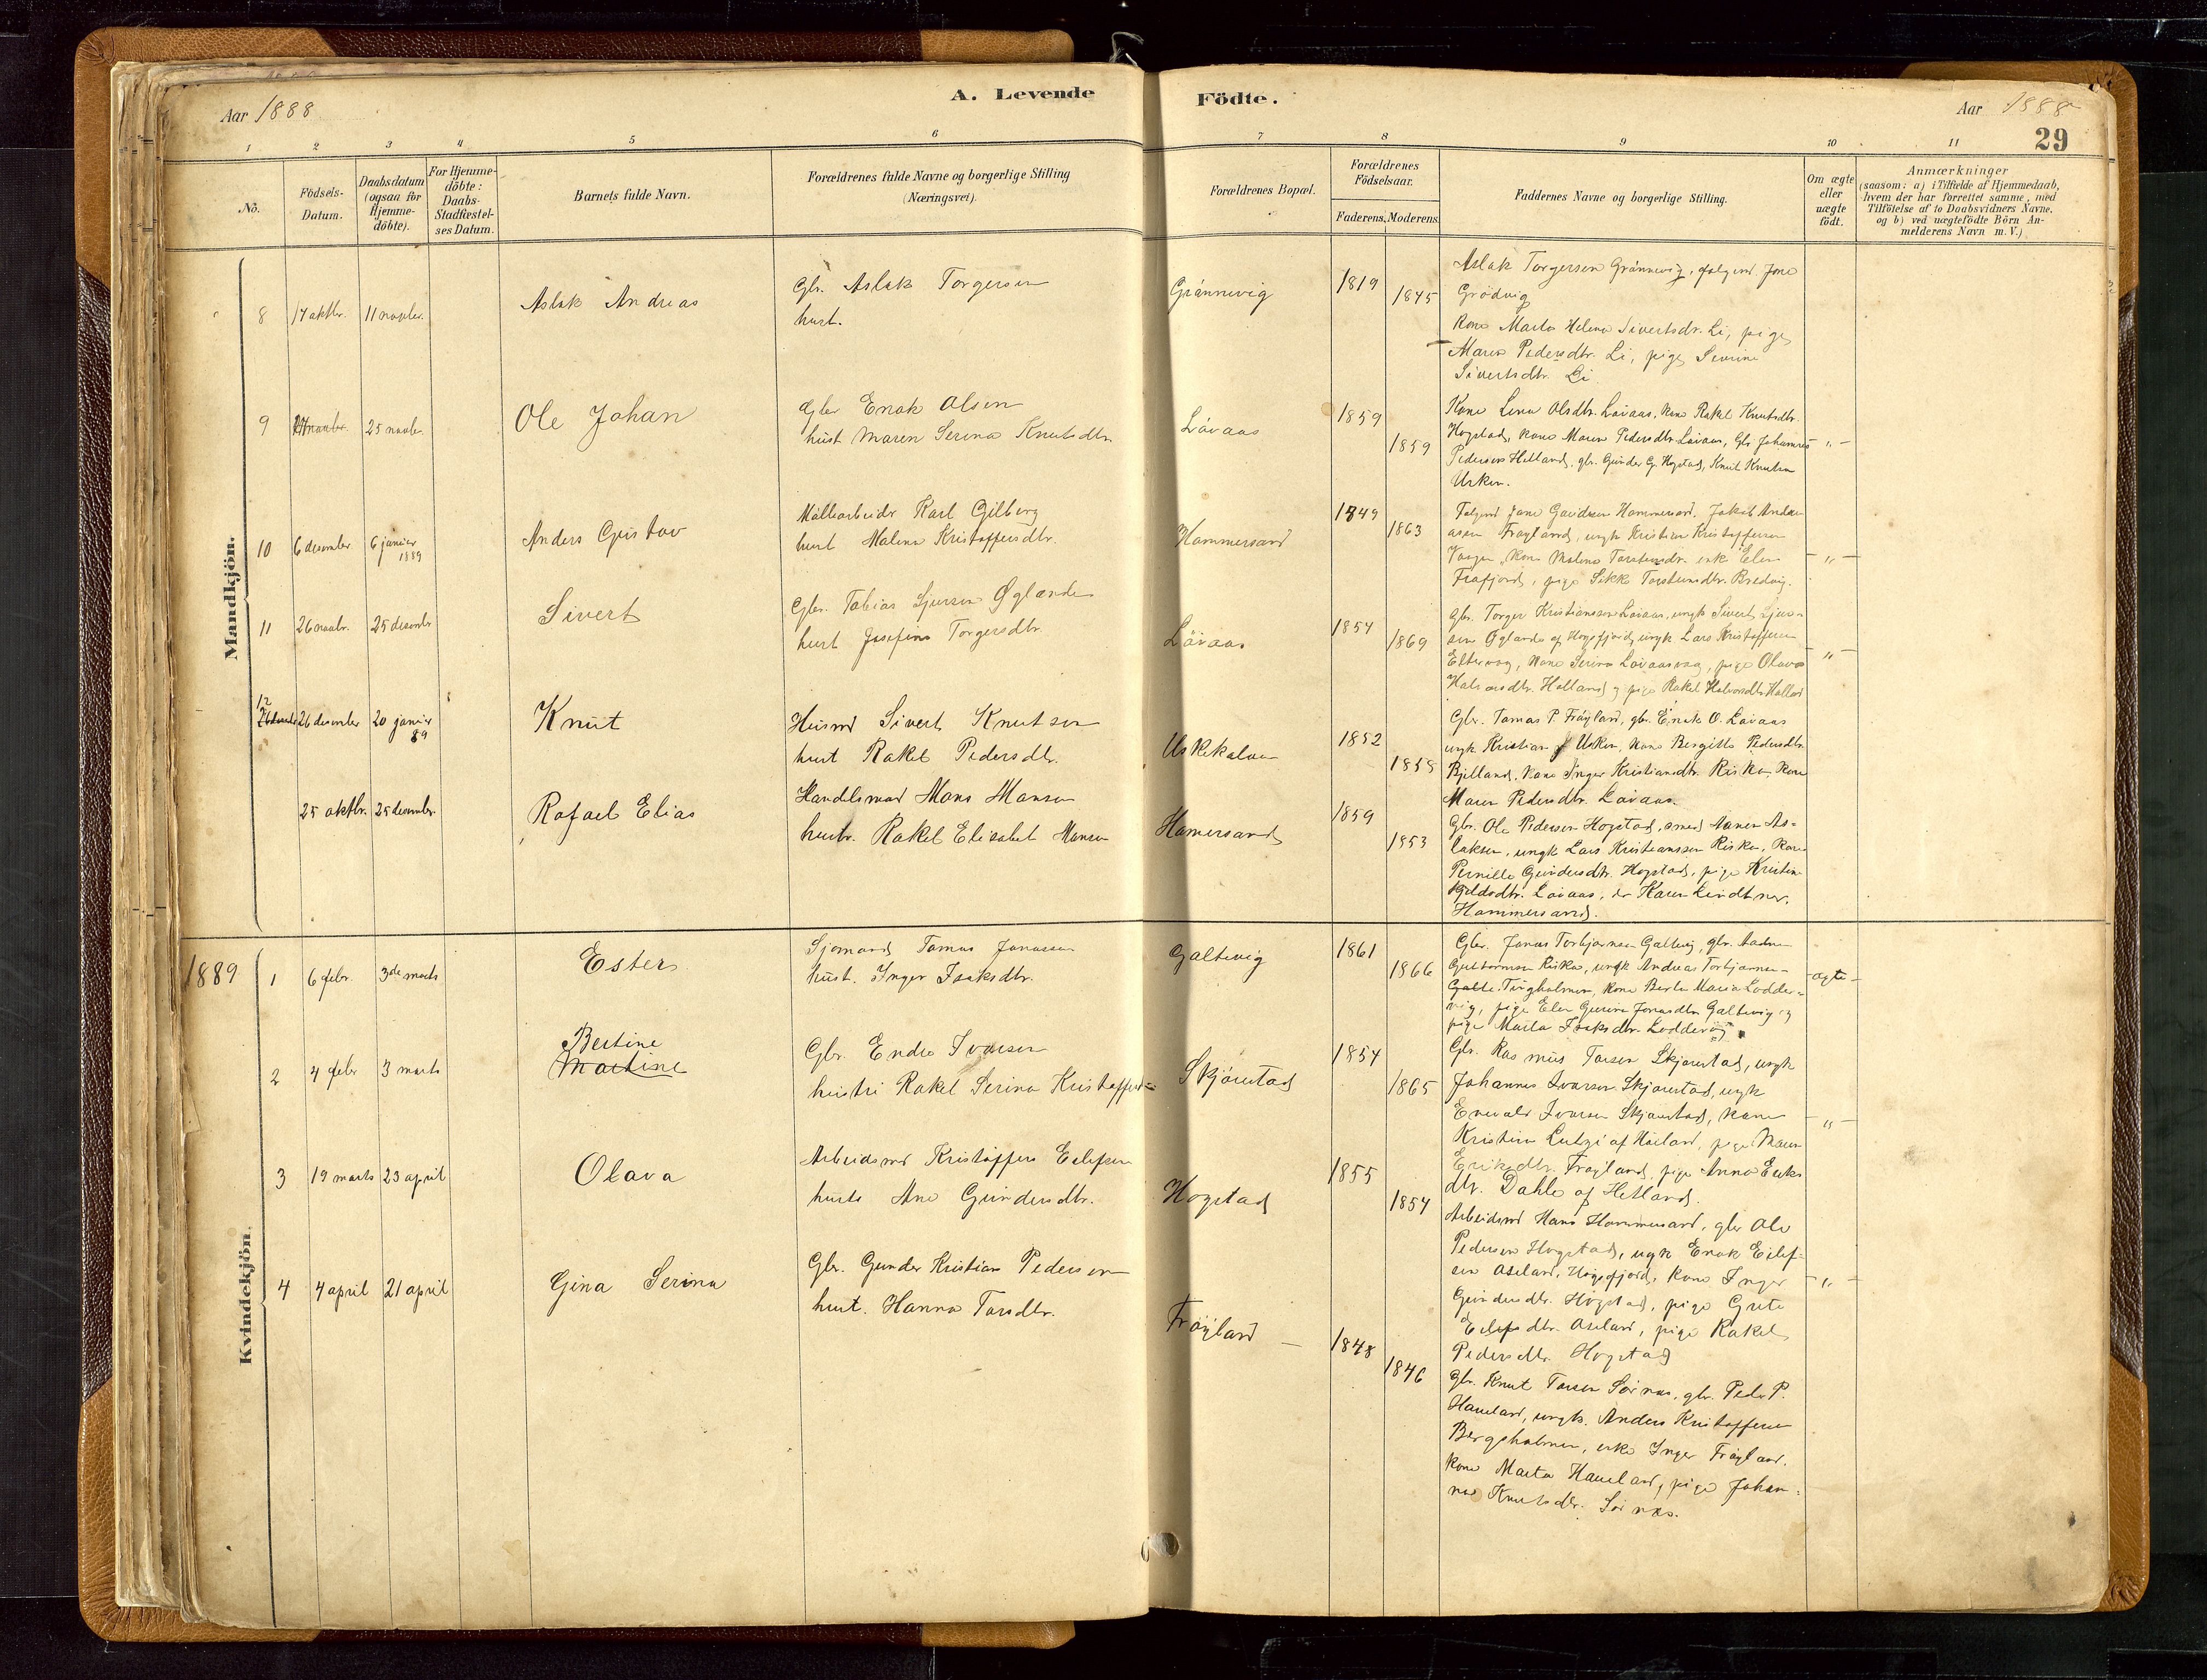 Aar 1888
A. Levende
Födte.
Aar 1888
29
1
2
3
4
5
6
7
8
9
10
11
No.
Födsels-
Datum.
Daabsdatum
(ogsaa for
Hjemme-
döbte).
For Hjemme-
döbte:
Daabs-
Stadfæstel-
ses Datum.
Barnets fulde Navn.
Forældrenes fulde Navne og borgerlige Stilling
(Næringsvei).
Forældrenes Bopæl.
Forældrenes
Födselsaar.
Faderens.
Moderens.
Faddernes Navne og borgerlige Stilling.
Om ægte
eller
uægte
födt.
Anmærkninger
(saasom: a) i Tilfælde af Hjemmedaab,
hvem der har forrettet samme, med
Tilföielse af to Daabsvidners Navne,
og b) ved uægtefödte Börn An-
melderens Navn m. V.)
Mandkjön.
8
11 novbr.
Aslak Andreas
Gbr. Aslak Torgersen
hust.
Grönnevig
1819
1845
Aslak Torgersen Grönnevig, Jone
Grödvig
Kone Marta Helene Sivertsdr. Li, pige
Maren Pedersdtr. Li, pige Serine
Sivertsdtr. Li
9
25 novbr.
Ole Johan
Gbr Enok Olsen
hust Maren Serina Knutsdtr.
Lövaas
1859
1859
Kone Lena Olsdtr. Lövaas, kone Rakel Knutsdtr.
Hogstad, kone Maren Pedersdtr Lövaas, Gbr Johannes
Pedersen Helland, gbr. Gunder G. Hogstad, Knut Knutsen
Usken.
"
10
6 desember
6 januar
1889
Anders Gustav
Karl Gilberg
hust Malena Kristoffersdtr.
Hammersand
1849
1863
Jone Hammersand, Jakob Andre-
asen Fröyland, ungk Kristian Kristoffersen
kone Malena Torsteinsdtr. enk Elen
Frafjord, pige Sikke Torsteinsdtr. Bredvig.
"
11
26 novbr.
25 desembr
Sivert
Gbr. Tobias Sjursen Öglænde
hust Josefine Torgersdtr.
Lövaas
1854
1869
Gbr. Torger Kristiansen Lövaas, ungk Sivert Sjur-
sen Öglænde af Högsfjord, ungk Lars Kristoffersen
kone Serina Lövaasvag, pige Olava
Halvorsdtr. Helland og pige Rakel Halvorsdtr Helland
"
12
26 desember
20 januar
89
Knut
Husmd Sivert Knutsen
hust Rakel Pedersdtr.
Uskekalven
1852
1858
Gbr. Tomas P. Fröyland, gbr. Enok O. Lövaas
ungk Kristian Usken, kone Bergitte Pedersdtr.
Bjelland, kone Inger Kristiansdtr. Riska, kone
Maren Pedersdtr. Lövaas.
25 oktbr.
25 desembr.
Rafael Elias
Handelsmand Mons Monsen
hustr. Rakel Elisabet Monsen
Hamersand
1859
1853
Gbr. Ole Pedersen Hogstad, smed As-
laksen, ungk Lars Kristianssen Riska, Kone
Pernille Gundersdtr. Hogstad, pige Kristin
Lövaas, Karen Lindtner,
Hammersand.
1889
Kvindekjön.
1
6 febr.
3de marts
Ester
Sjömand Tomas Jonassen
hust. Inger Isaksdtr.
Galtevig
1861
1866
Gbr. Jonas Torbjørnsen Galtevig, gbr. Aadne
Guttormsen Riska, ungk Andreas Torbjørnsen
Galte Tingholmen, kone Berta Maria Lodder-
vig, pige Elen Gurine Jonasdtr Galtevig og
pige Marta Isaksdtr. Loddervig.
ægte
2
4 febr
3 marts
Bertine
Martine
Gbr. Endre Ivarsen
hustri Rakel Serina Kristoffersd=
Skjörestad
1854
1865
Gbr. Rasmus Tarsen Skjörestad, ungk
Johannes Ivarsen Skjörestad, ungk
Enevald Ivarsen Skjörestad, kone
Kristina Lutzi af Höiland, pige Maren
Eriksdtr. Fröyland, pige Anna Eriks
dtr. Dahle af Hetland.
"
3
19 marts
23 april
Olava
Arbeidsmd Kristoffer Eilefsen
hustr Ane Gundersdtr.
Hogstad
1855
1854
Arbeidsmd Hans Hammersand, gbr Ole
Pedersen Hogstad, ugk Enok Eilef-
sen Aseland, Högsfjord, kone Inger
Gundersdtr. Hogstad, pige Grete
Eilefsdtr. Aseland, pige Rakel
Pedersdtr. Hogstad
"
4
4 april
21 april
Gina Serina
Gbr. Gunder Kristian Pedersen
hust. Hanna Tarsdtr.
Fröyland
1848
1846
Gbr. Knut Tarsen Sörnes, gbr. Peder P.
Haueland, ungk. Anders Kristoffersen
Bergsholmen, enke Inger Fröyland,
kone Marta Haueland, pige Johan-
ne Knutsdtr. Sörnes.